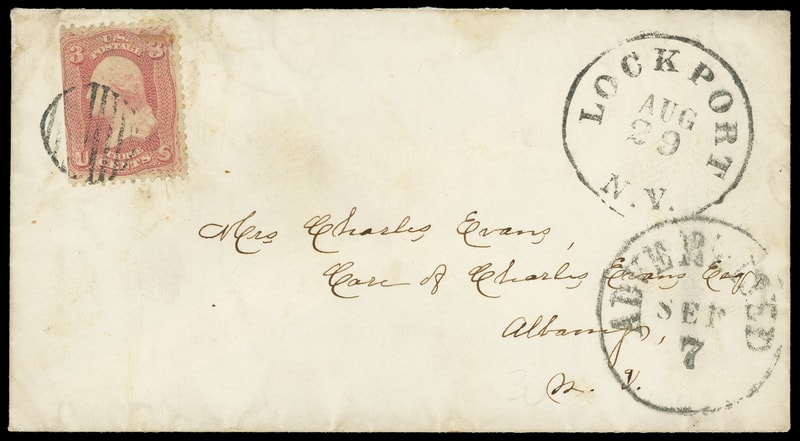 3 U.S. 3
POSTAGE
U S
THREE
CENTS
LOCKPORT
AUG
29
N.Y.
Mrs Charles Evans,
Care of Charles Evans Esq
Albany,
N. Y.
ADVERTISED
SEP
7
3